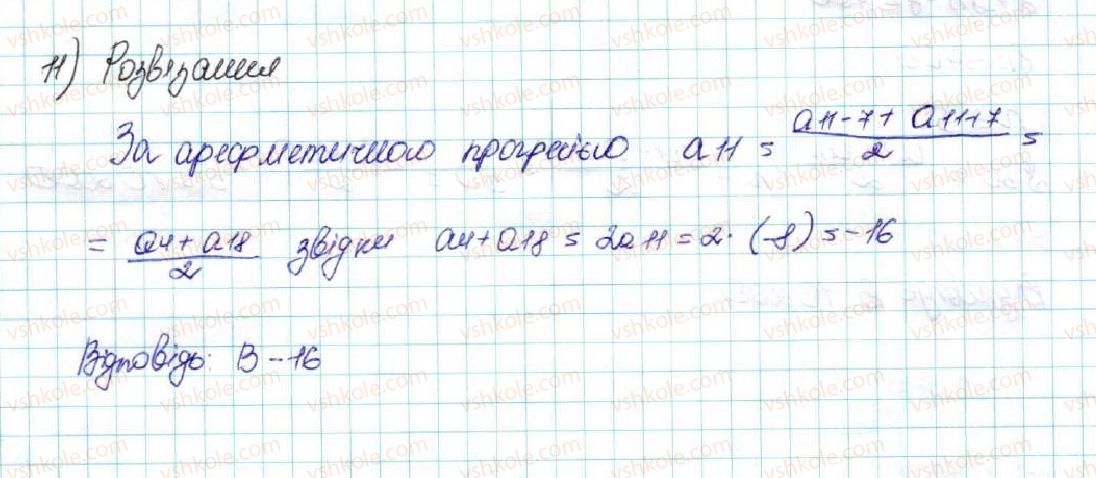 11) Розвізання
За арефметичною прогресією a11 = a11-7+a11+7/2 =
= a4+a18/2 звідки a4+a18 = 2a11 = 2·(-8) = -16
Відповідь: В -16